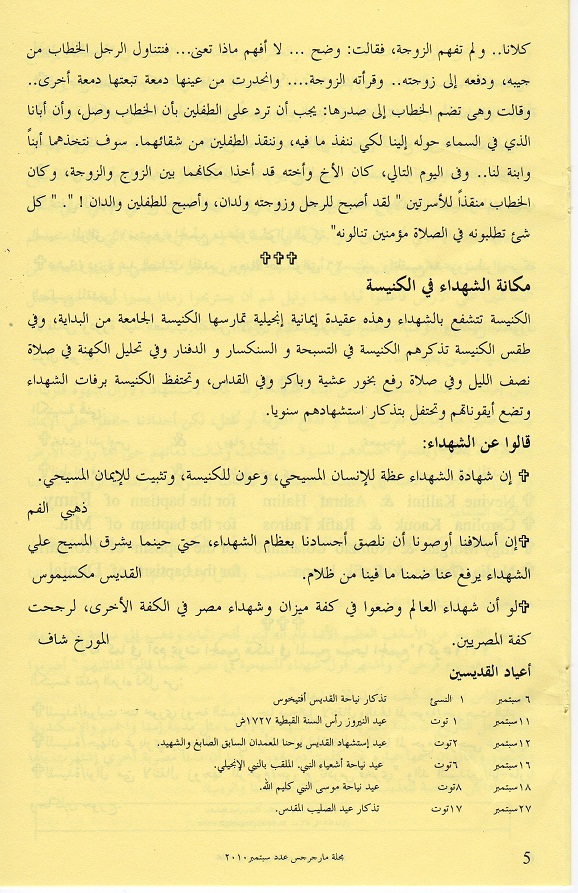 كلانا.. ولم تفهم الزوجة، فقالت: وضح ... لا أفهم ماذا تعنى... فنتناول الرجل الخطاب من
جيبه، ودفعه إلى زوجته.. وقرأته الزوجة.... وانحدرت من عينها دمعة تبعتها دمعة أخرى..
وقالت وهى تضم الخطاب إلى صدرها: يجب أن ترد على الطفلين بأن الخطاب وصل، وأن أبانا
الذي في السماء حوله إلينا لكي ننفذ ما فيه، وننقذ الطفلين من شقائهما. سوف نتخذهما أبناً
وابنة لنا.. وفى اليوم التالي، كان الأخ وأخته قد أخذا مكانهما بين الزوج والزوجة، وكان
الخطاب منقذاً للأسرتين " لقد أصبح للرجل وزوجته ولدان، وأصبح للطفلين والدان ! ". " كل
شئ تطلبونه في الصلاة مؤمنين تنالونه"
✞✞✞
مكانة الشهداء في الكنيسة
الكنيسة تتشفع بالشهداء وهذه عقيدة إيمانية إنجيلية تمارسها الكنيسة الجامعة من البداية، وفي
طقس الكنيسة تذكرهم الكنيسة في التسبحة و السنكسار و الدفنار وفي تحليل الكهنة في صلاة
نصف الليل وفي صلاة رفع بخور عشية وباكر وفي القداس، وتحتفظ الكنيسة برفات الشهداء
وتضع أيقوناتهم وتحتفل بتذكار استشهادهم سنويا.
قالوا عن الشهداء:
✞ إن شهادة الشهداء عظة للإنسان المسيحي، وعون للكنيسة، وتثبيت للإيمان المسيحي.
ذهبي الفم
✞إن أسلافنا أوصونا أن نلصق أجسادنا بعظام الشهداء، حتى حينما يشرق المسيح علي
الشهداء يرفع عنا ضمنا ما فينا من ظلام. القديس مكسيموس
✞لو أن شهداء العالم وضعوا في كفة ميزان وشهداء مصر في الكفة الأخرى، لرجحت
كفة المصريين. المورخ شاف
أعياد القديسين
٦ سبتمبر ١ النسئ تذكار نياحة القديس أفتيخوس
١١سبتمبر ١ توت عيد النيروز رأس السنة القبطية ١٧٢٧ش
١٢سبتمبر ٢توت عيد إستشهاد القديس يوحنا المعمدان السابق الصابغ والشهيد.
١٦سبتمبر ٦توت عيد نياحة أشعياء النبي. الملقب بالنبي الإنجيلي.
١٨سبتمبر ٨توت عيد نياحة موسى النبي كليم الله.
٢٧سبتمبر ١٧توت تذكار عيد الصليب المقدس.
5 مجلة مارجرجس عدد سبتمبر٢٠١٠